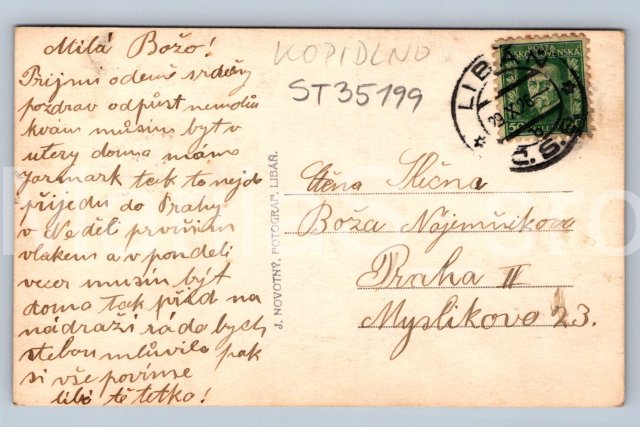 Milá Božo!
Přijmi odemě srdečný
pozdrav odpust nemůžu
kvám musím byt v
utery doma máme
Jarmark tak to nejde
přijedu do Prahy
v Neděli prvním
vlakem a v ponděli
vecer musím být
doma tak přijd na
nádraží ráda bych
stebou mluvila pak
si vše povíme
libá tě tetka!
KOPIDLNO
ST35199
POSTA
CESKOSLOVENSKA
50
LIBÁŇ
Č.S.
J. NOVOTNÝ, FOTOGRAF, LIBÁŇ.
Slična
Boža Najemníkova
Praha II
Myslikova 23.